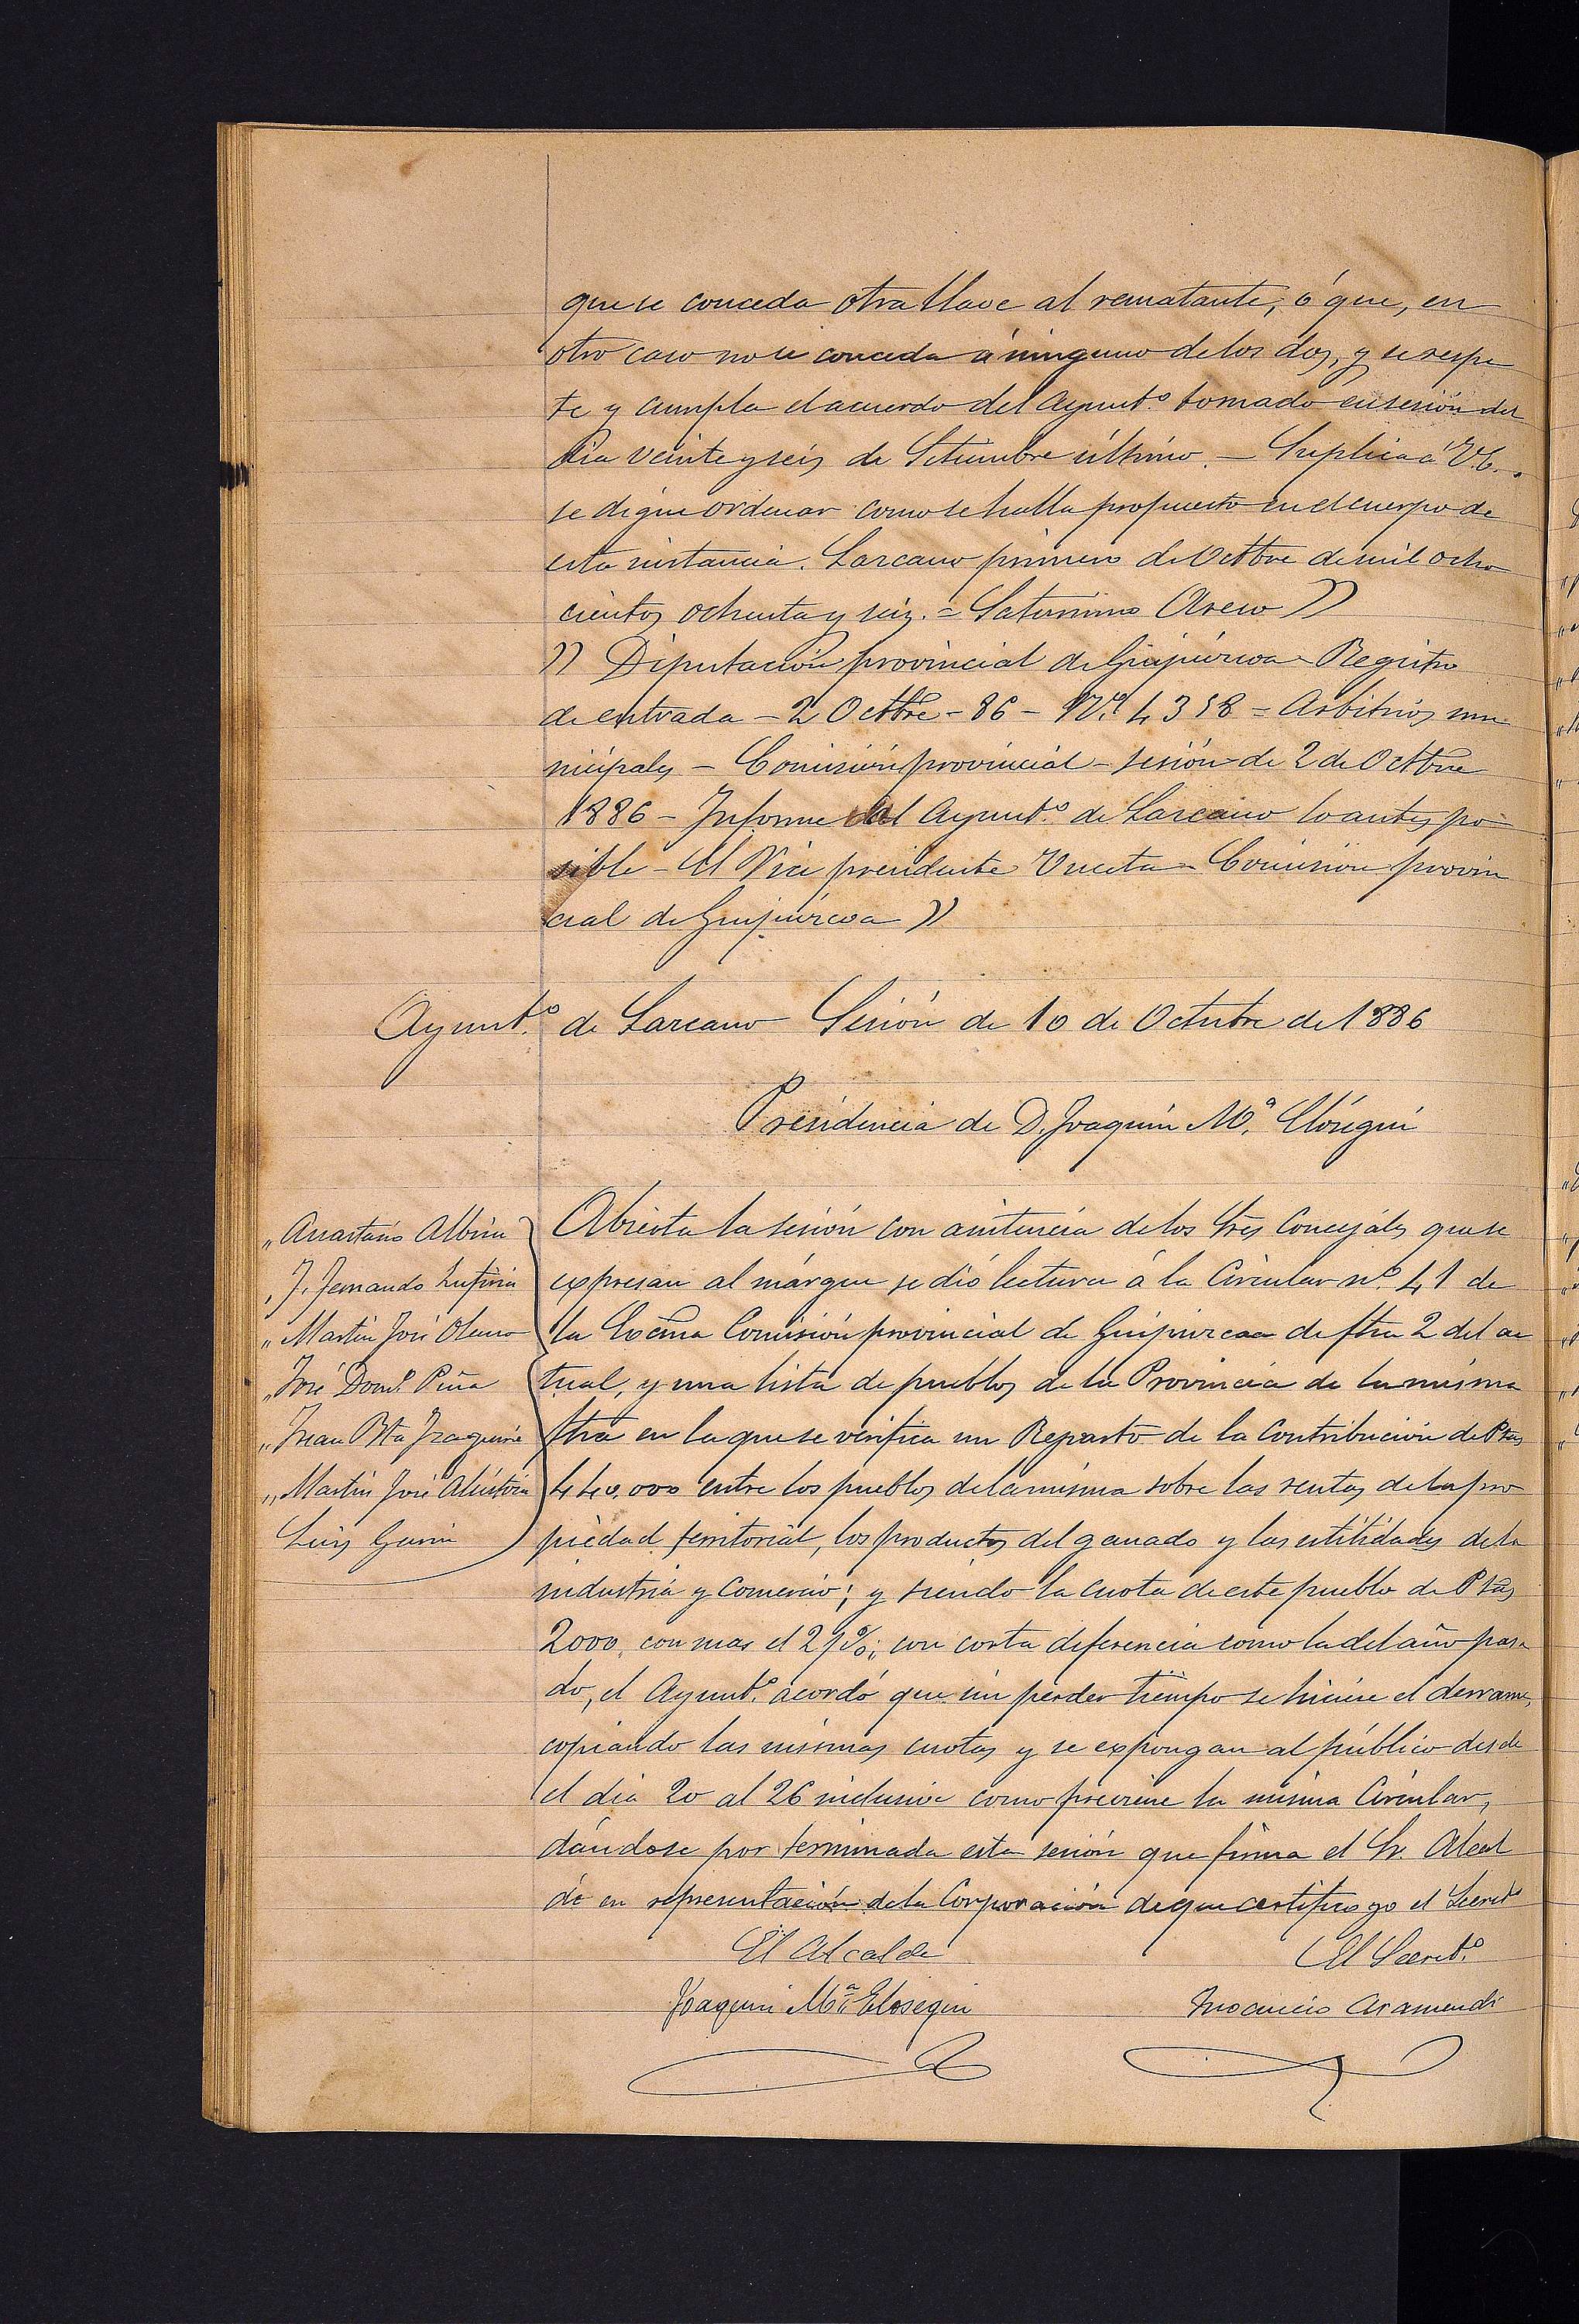 que se conceda otra llave al rematante, ó que, en
otro caso no se conceda á ninguno de los dos, y se respe
te y cumpla el acuerdo del Ayunt.º tomado en sesión del
dia veinte y seis de Setiembre último. — Suplica á V.E.
se digne ordenar como se halla propuesto en el cuerpo de
esta instancia. Lazcano primero de Octbre de mil ocho
cientos ochenta y seis. = Saturnino Areso ))
)) Diputación provincial de Guipúzcoa - Registro
de entrada - 2 Octbre - 86 - Nº 4358 = Arbitrios mu
nicipales - Comisión provincial - sesión de 2 de Octbre
1886 - Informe el Ayunt.º de Lazcano lo antes po
sible - El Vice presidente Vneeta - Comisión provin
cial de Guipúzcoa ))
Ayunt.º de Lazcano Sesión de 10 de Octubre de 1886
Presidencia de D. Joaquin M.ª Elósegui
„ Anastasio Albisu
„ J. Fernando
„ Martin José Olano
„ José Dom.º Piña
„ Juan Bta Izaguirre
„ Martin José Alústiza
Luis Garin
Abierta la sesión con asistencia de los Sres Concejales que se
expresan al márgen se dió lectura á la Circular nº. 41 de
la Excma Comisión provincial de Guipúzcoa de fha 2 del ac
tual, y una lista de pueblos de la Provincia de la misma
fha en la que se verifica un Reparto de la Contribución de Ptas
440.000 entre los pueblos de la misma sobre las rentas de la pro
piedad territorial, los productos del ganado y las utilidades de la
industria y Comercio; y siendo la cuota de este pueblo de Ptas
2000, con mas el 2 %; con corta diferencia como la del año pasa
do, el Ayunt.º acordó que sin perder tiempo se hiciese el derrame,
copiando las mismas cuotas y se expongan al público desde
el dia 20 al 26 inclusive como previene la misma Circular,
dándose por terminada esta sesión que firma el Sr. Alcal
de en representación de la Corporación de que certifico yo el Secretº
El Alcalde El Secret.º
Joaquin M.ª Elosegui Inocencio Aramendi